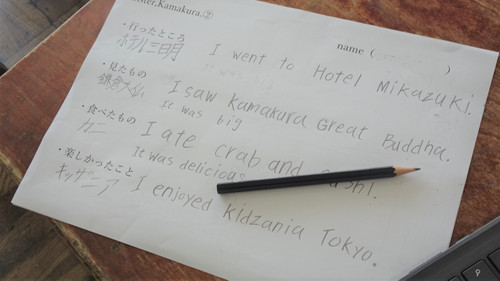 ster,Kamakura.②
name ( )
・行ったところ
ホテル三日月 I went to Hotel Mikazuki.
・見たもの
鎌倉大仏 I saw Kamakura Great Buddha.
It was big
・食べたもの
カニ I ate crab and sushi.
It was delicious
・楽しかったこと
キッザニア I enjoyed kidzania Tokyo.